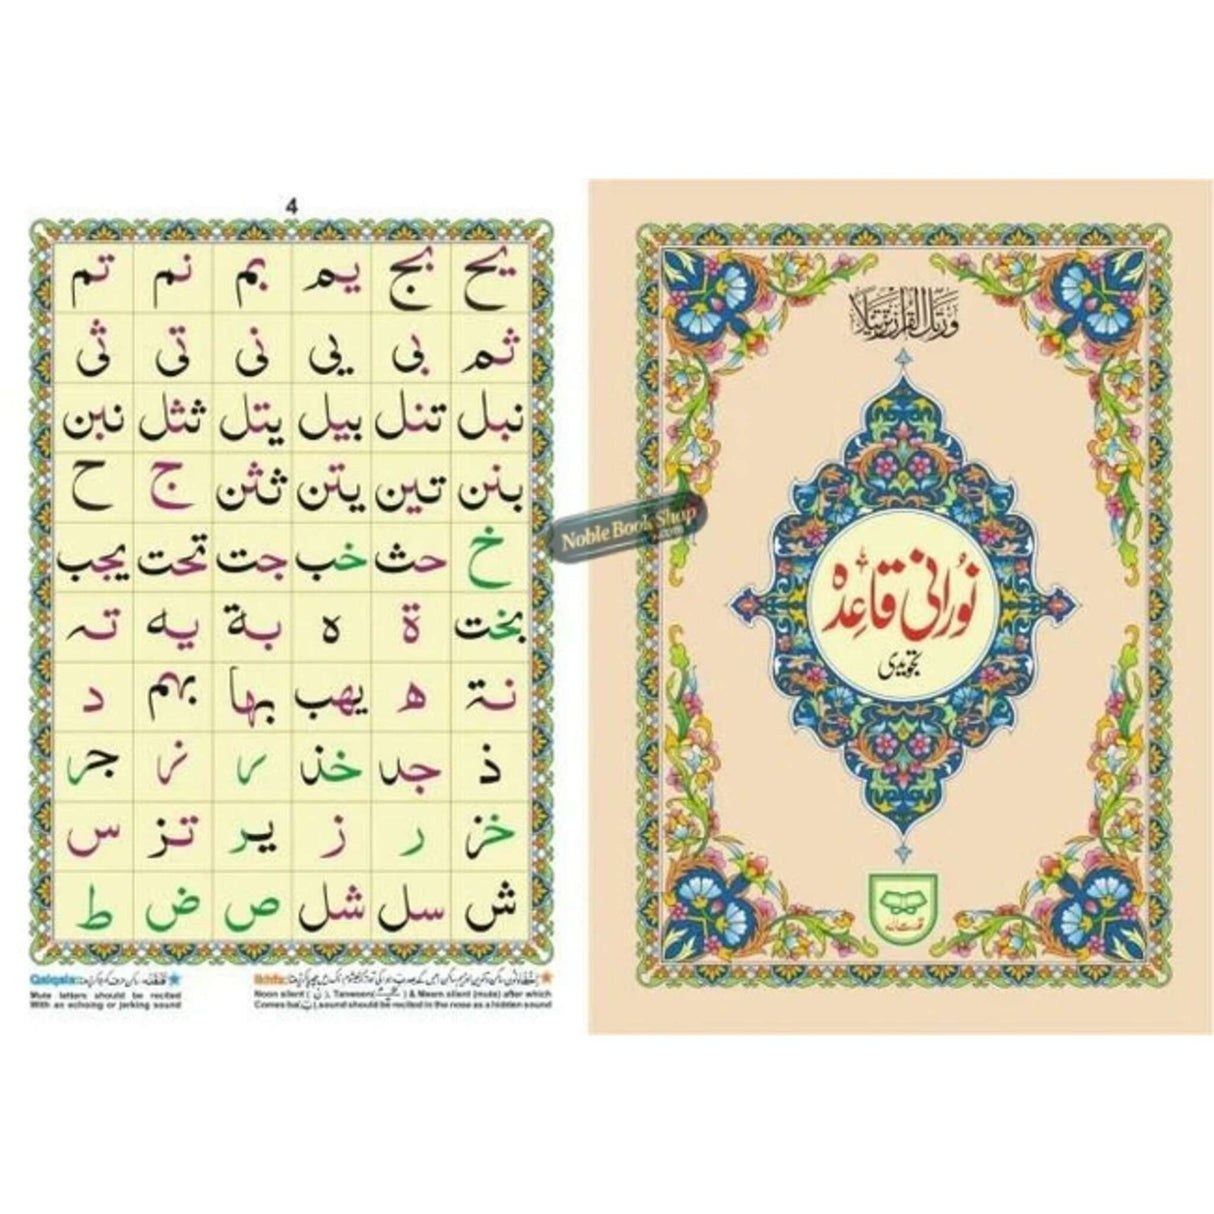 4
یح بج یم بم نم تم
ثم بی یی نی تی ثی
نبل تنل بیل یتل ثثل نبن
بنن تین یتن ثثن ج ح
خ حث خب جت تحت یجب
بخت ة ہ بة یه تہ
نة ھ یھب بہا بہم د
ذ جد خذ ر نر جر
خز ر ز یر تز س
ش سل شل ص ض ط
Qalqala: قلقلہ:
Mute letters should be recited
With an echoing or jerking sound
Ikhfa:
Noon silent (نْ), Tanween( ) & Meem silent (mute) after which
Comes ba(ب),sound should be recited in the nose as a hidden sound
Noble Book Shop
.com
وَرَتِّلِ الْقُرْآنَ تَرْتِيلًا
نُورانی قاعِدہ
تجویدی